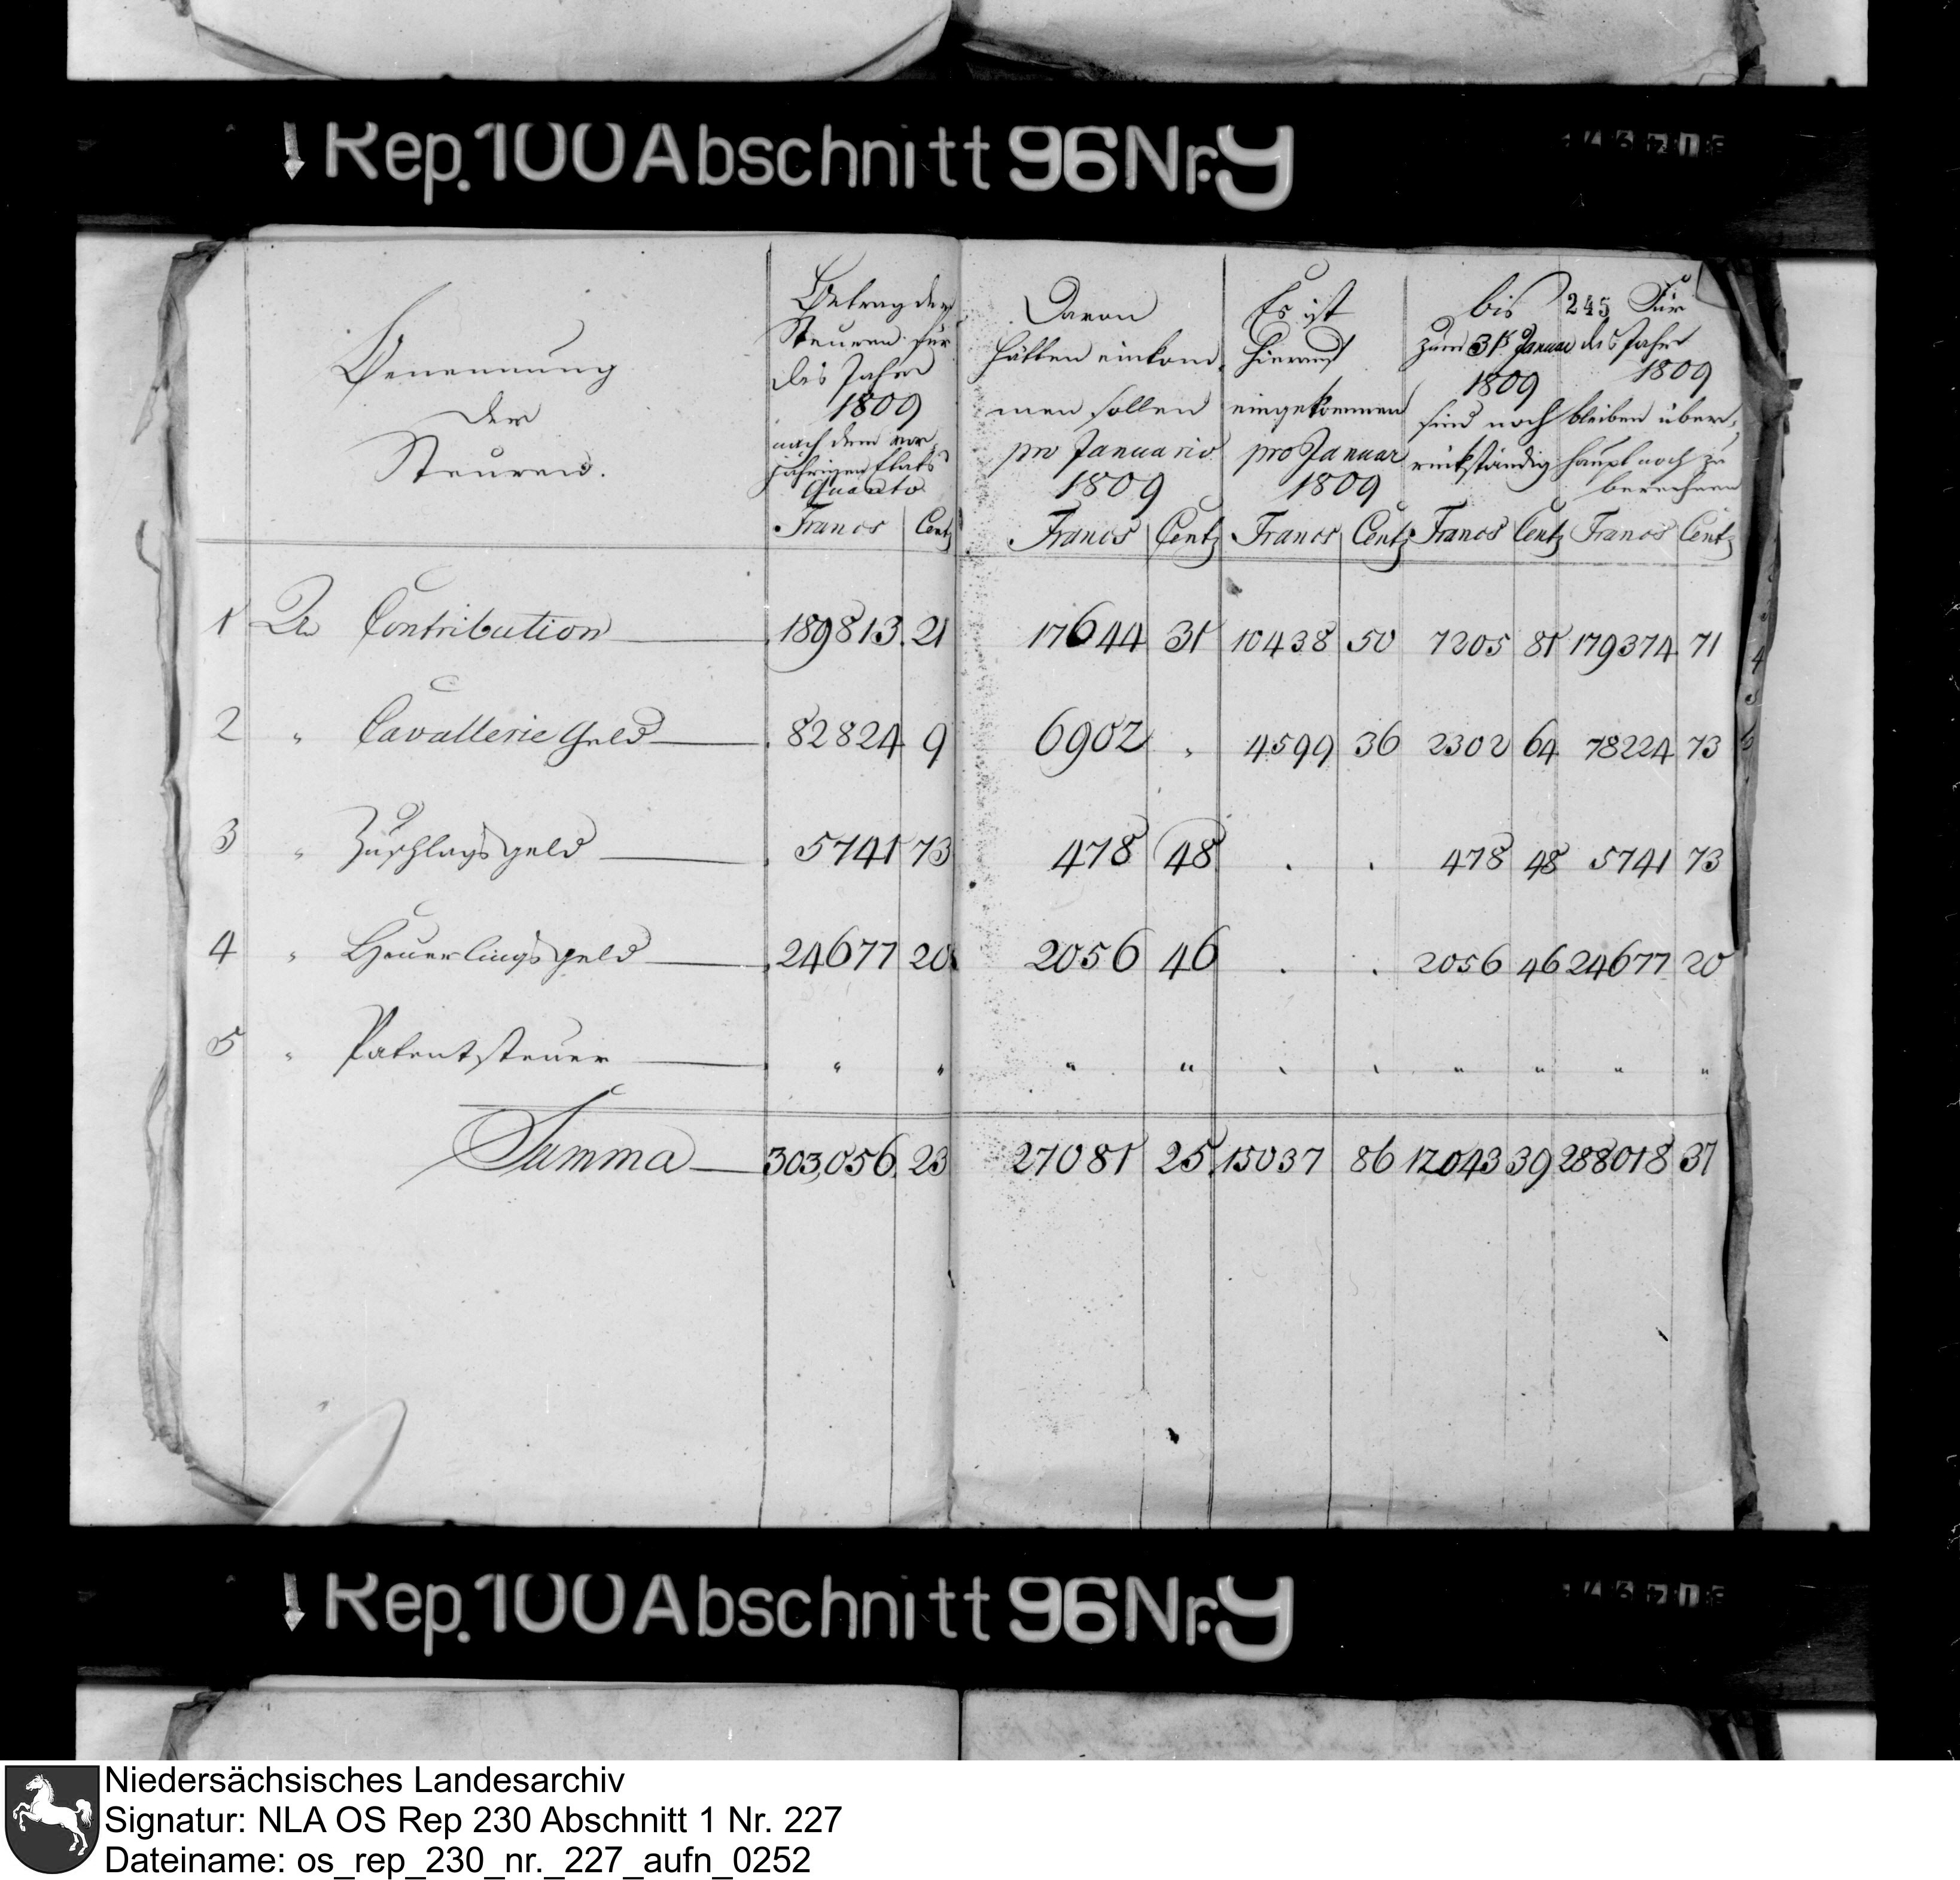 Rep. 100 Abschnitt 96 Nr. 9
245
Benennung
der
Steuren.
Betrag der
Steuren für
des Jahr
1809
nach dem vor,
jährigen Etats
Quanto
Francs Cent
Davon
hätten einkom,
men sollen
pro Januario
1809
Francs Centz
Es ist
hierauf
eingekommen
pro Januar
1809
Francs Centz
bis
zum 31t Januar
1809
sind noch
rückständig
Francs Centz
Für
des Jahr
1809
bleiben über,
haupt noch zu
berechnen
Francs Centz
1 An Contribution 189813. 21 17644 31 10438 50 7205 81 179374 71
2 " Cavallerie Geld 82824 9 6902 " 4599 36 2302 64 78224 73
3 " Zuschlagsgeld 5741 73 478 48 . . 478 48 5741 73
4 " Heuerlingsgeld 24677 20 2056 46 . . 2056 46 24677 20
5 " Patentsteuer " " " " " " " " " "
Summa 303,056, 23 27081 25 15037 86 12043 39 288018 37
Rep. 100 Abschnitt 96 Nr. 9
Niedersächsisches Landesarchiv
Signatur: NLA OS Rep 230 Abschnitt 1 Nr. 227
Dateiname: os_rep_230_nr._227_aufn_0252